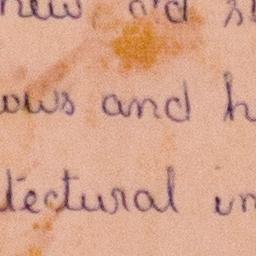 new and s
ows and h
tectural in